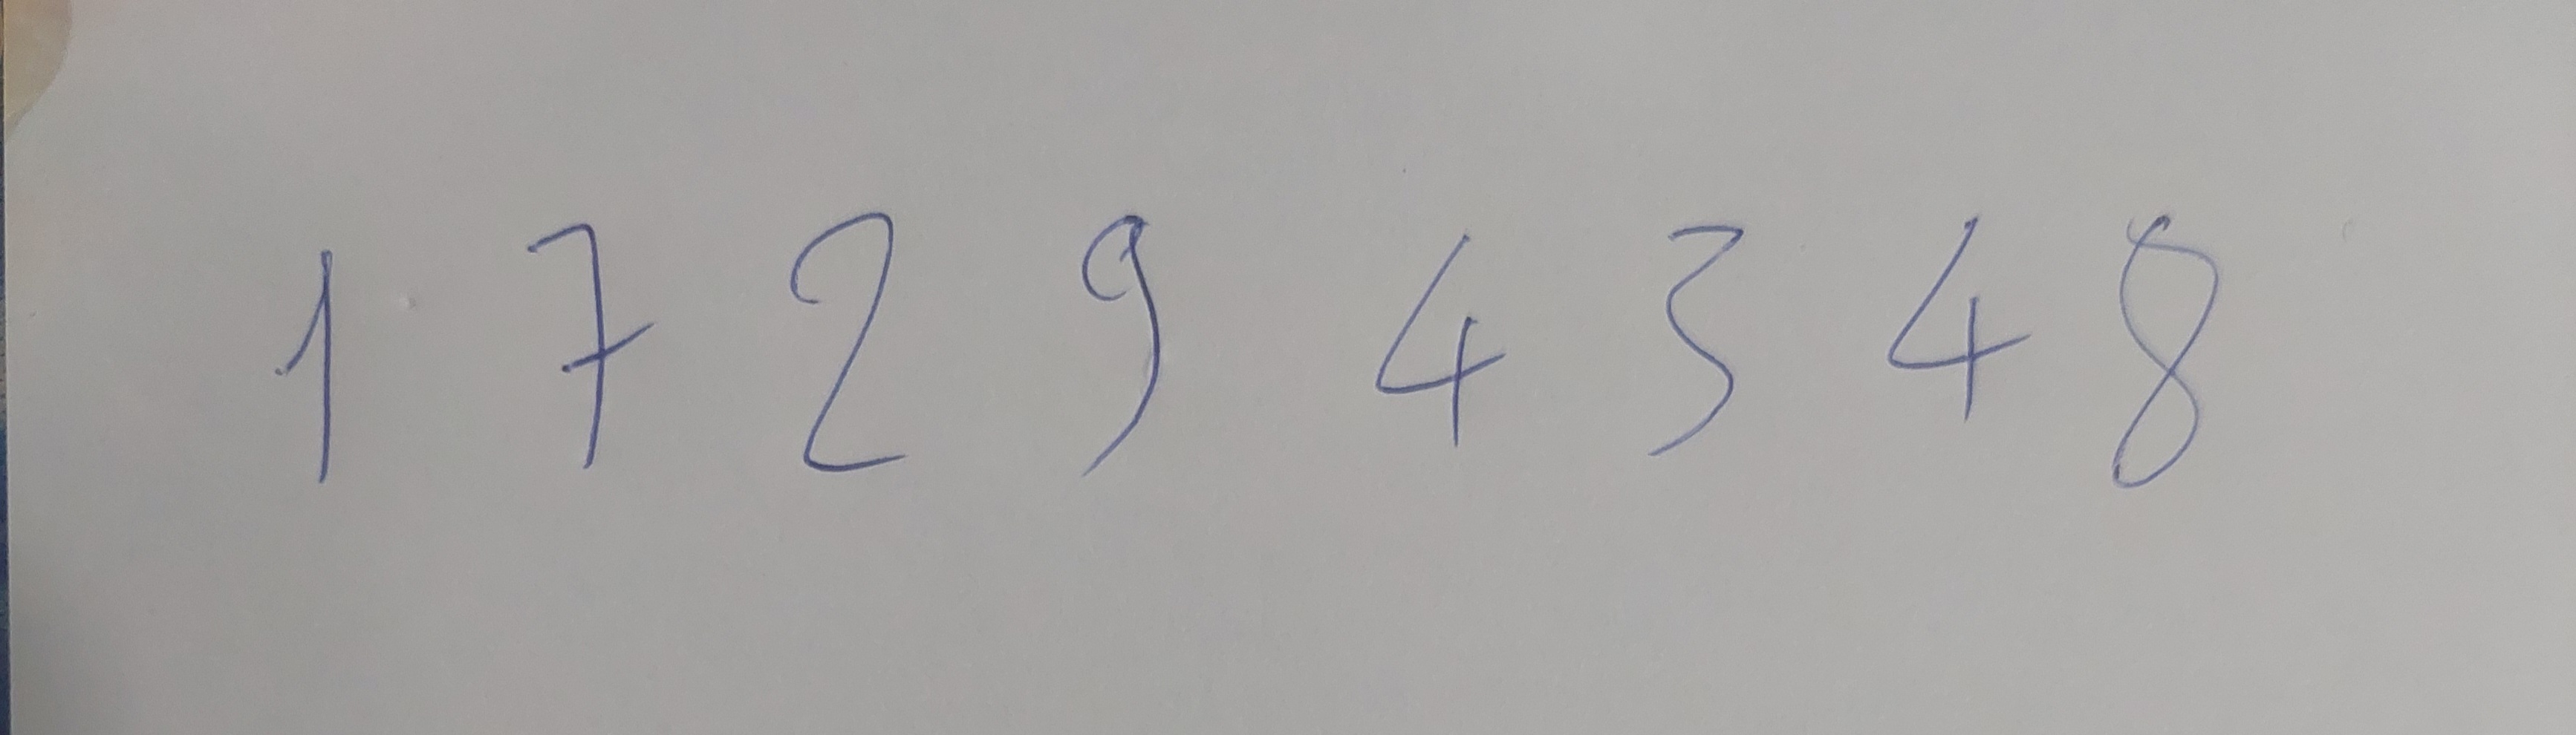 1 7 2 9 4 3 4 8